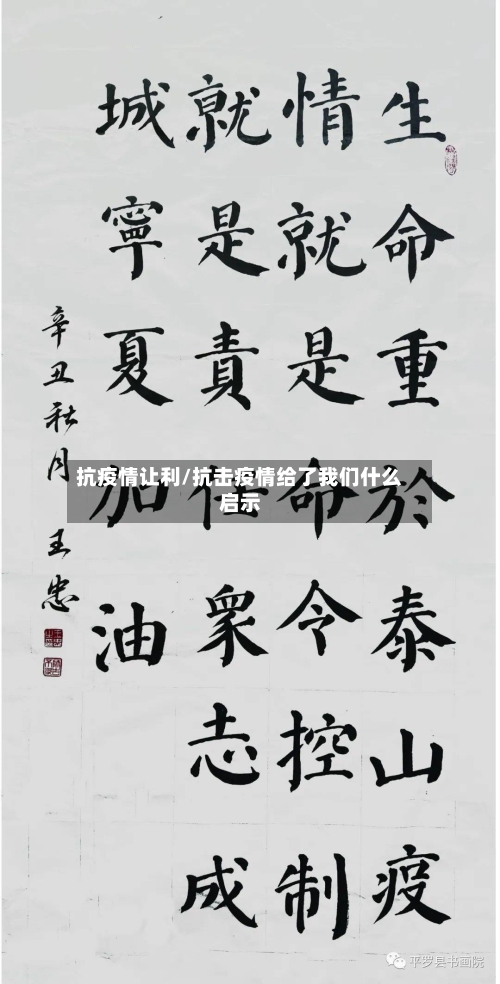 生命重於泰山疫
情就是命令控制
就是責任衆志成
城寧夏加油
辛丑秋月 王忠
抗疫情让利/抗击疫情给了我们什么
启示
平罗县书画院